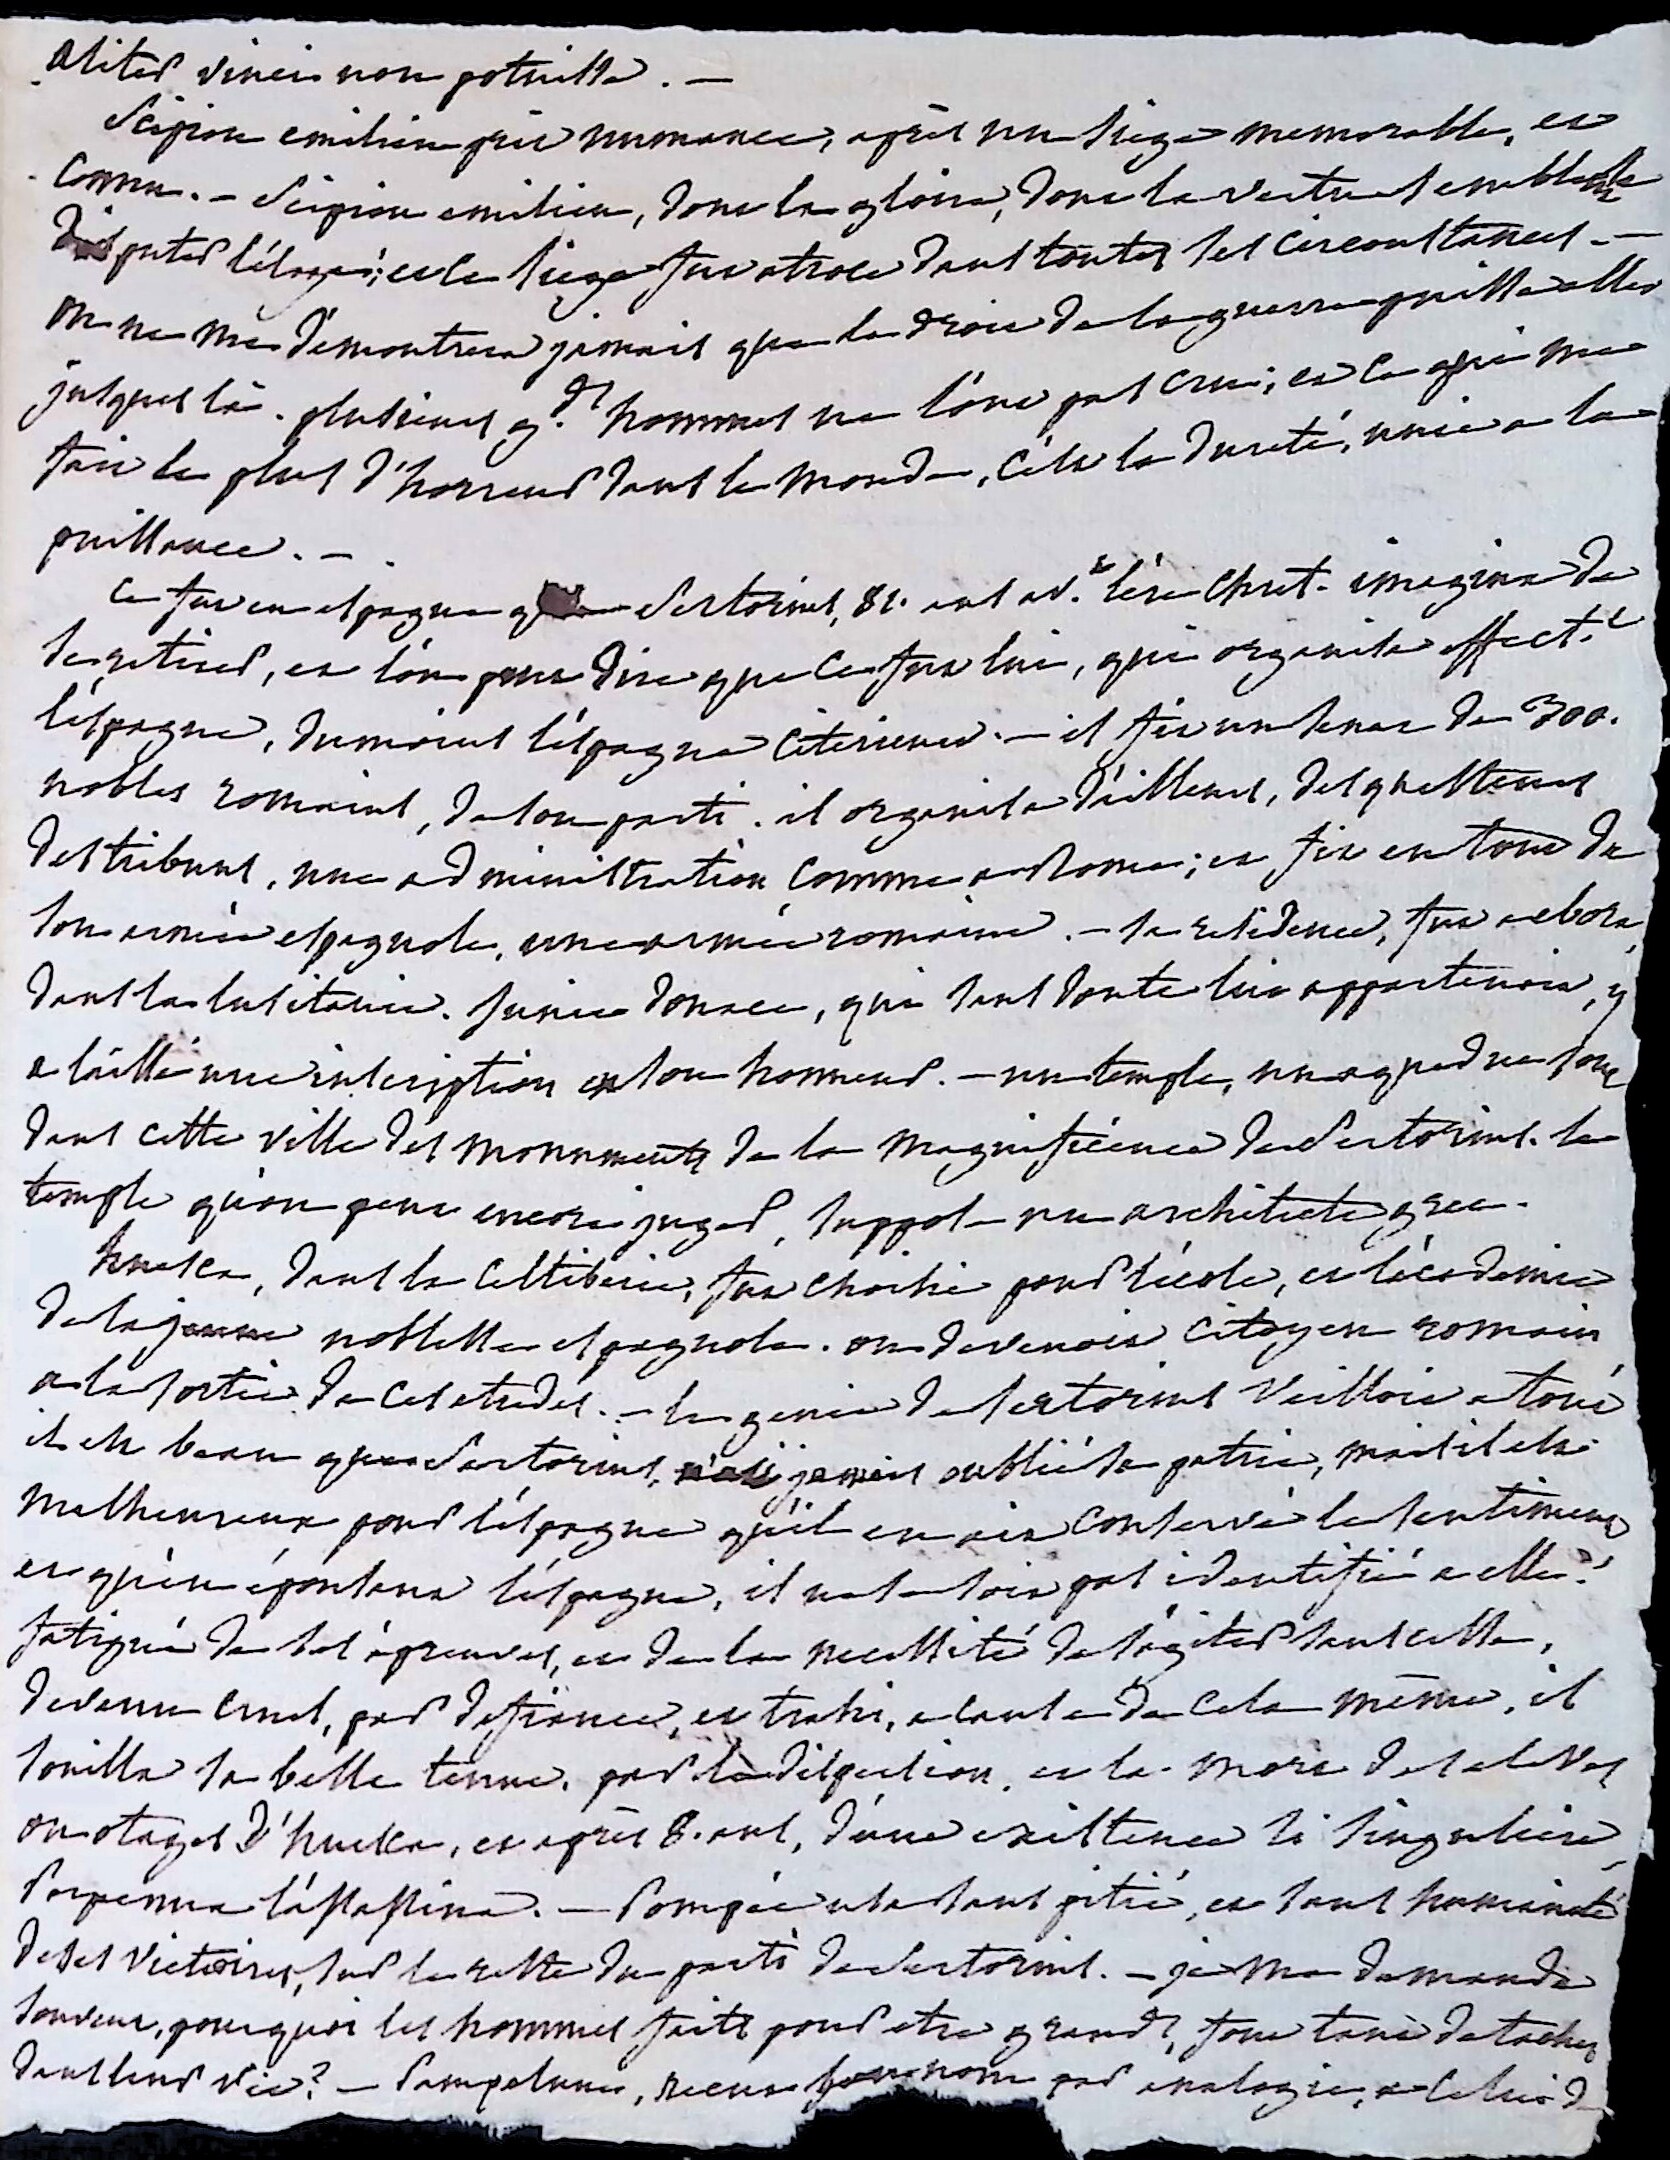 aliter vinci non potuisse. —
Scipion emilien prit numance, après un siège memorable, et
connu. — Scipion emilien, dont la gloire, dont la vertu semblent
disputer l'éloge; et le siege fut atroce dans toutes ses circonstances. —
on ne me démontrera jamais que le droit de la guerre puisse aller
jusques là. plusieurs gds hommes ne l'ont pas cru; et ce qui me
fait le plus d'horreur dans le monde, c'est la dureté, unie a la
puissance. —
Ce fut en espagne que Sertorius, 81. ans avt l'ére chret. imagina de
se retirer, et l'on peut dire que ce fut lui, qui organisa effect.t
l'espagne, du moins l'espagne citerieure. — il fit un senat de 300.
nobles romains, de son parti. il organisa d'ailleurs, des questeurs
des tribuns, une administration comme a Rome; et fit en tout de
son armée espagnole, une armée romaine. — sa residence, fut a ebora,
dans la lusitanie. Junia donace, qui sans doute lui appartenoit, y
a laissé une inscription en son honneur. — un temple, un aqueduc sont
dans cette ville des monuments de la magnificence de Sertorius. le
temple qu'on peut encore juger, suppose un architecte grec.
huesca, dans la Celtiberie, fut choisie pour l'école, et l'académie
de la jeune noblesse espagnole. on devenoit citoyen romain
a la sortie de ces etudes. — le genie de sertorius veilloit a tout
il est beau que Sertorius, n'ait jamais oublié sa patrie, mais il est
malheureux pour l'espagne qu'il en ait conservé le sentiment
et qu'en épousant l'espagne, il ne se soit pas identifié a elle.
fatigué de ses épreuves, et de la necessité de s'agiter sans cesse,
devenu cruel, par defiance, et trahi, a cause de cela même, il
souilla sa belle tenue, par la dispersion, et la mort des eleves
ou otages d'huesca, et après 8. ans, d'une existence si singuliere
Perpenna l'assassina. — Pompée usa sans pitié, et sans humanité
de ses victoires, sur le reste du parti de Sertorius. — je me demande
souvent, pourquoi les hommes faits pour etre grands, font tant de taches
dans leur vie? — Pampelune, recut son nom par analogie, a celui d